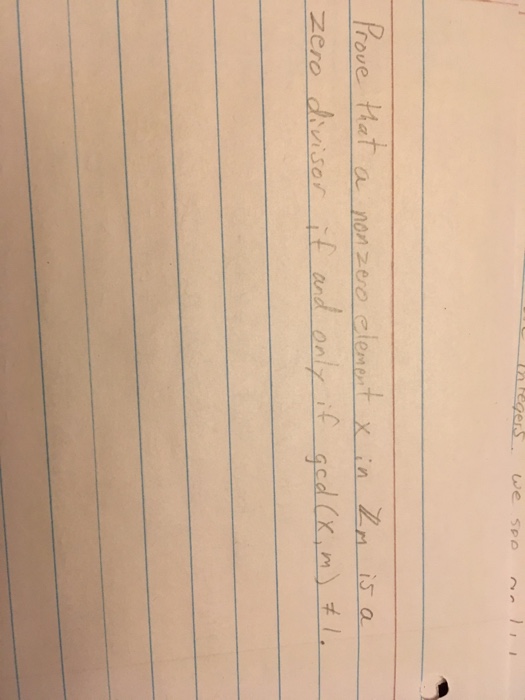 integers. we see
Prove that a nonzero element x in ℤm is a
zero divisor if and only if gcd(x,m) ≠ 1.